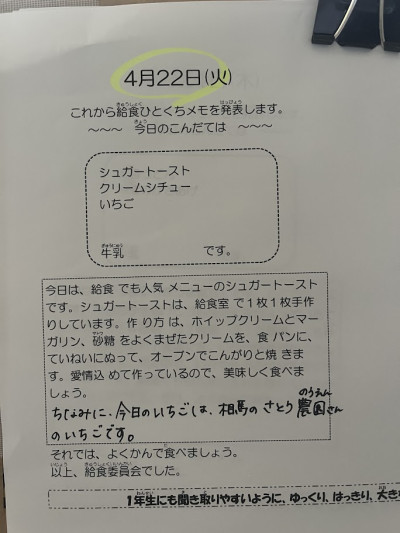 4月22日(火)
これから給食ひとくちメモを発表します。
～～～ 今日のこんだては ～～～
シュガートースト
クリームシチュー
いちご
牛乳 です。
今日は、給食 でも人気 メニューのシュガートースト
です。シュガートーストは、給食室 で1枚1枚手作
りしています。作 り方 は、ホイップクリームとマー
ガリン、砂糖 をよくまぜたクリームを、食 パンに、
ていねいにぬって、オーブンでこんがりと焼 きま
す。愛情込 めて作っているので、美味しく食べま
しょう。
ちなみに、今日のいちごは、相馬の さとり 農園さん
のいちごです。
それでは、よくかんで食べましょう。
以上、給食委員会でした。
1年生にも聞き取りやすいように、ゆっくり、はっきり、大き